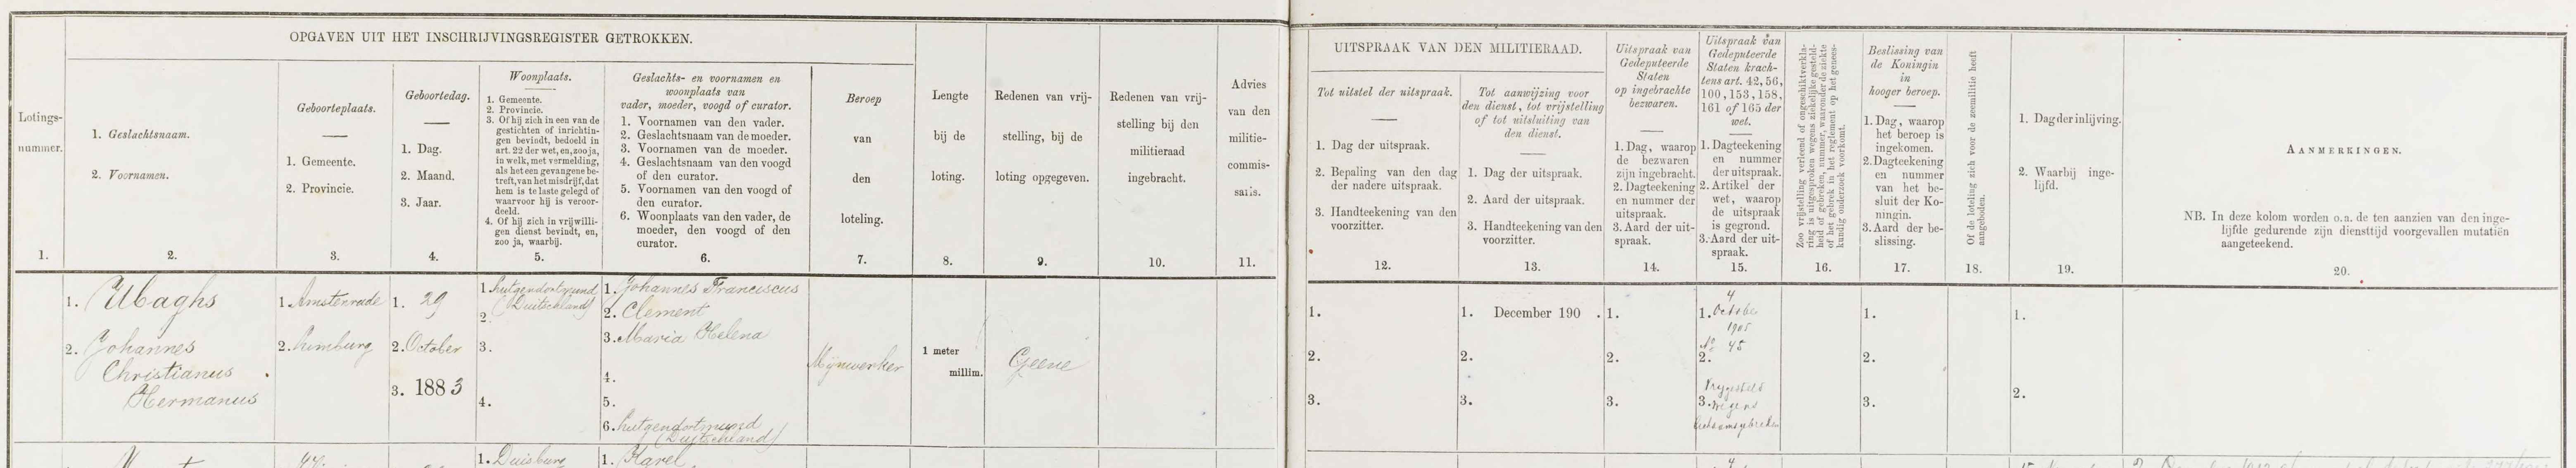 OPGAVEN UIT HET INSCHRIJVINGSREGISTER GETROKKEN.
Lotings-
nummer.
1.
1. Geslachtsnaam.
2. Voornamen.
2.
Geboorteplaats.
1. Gemeente.
2. Provincie.
3.
Geboortedag.
1. Dag.
2. Maand.
3. Jaar.
4.
Woonplaats.
1. Gemeente.
2. Provincie.
3. Of hij zich in een van de
gestichten of inrichtin-
gen bevindt, bedoeld in
art. 22 der wet, en, zoo ja,
in welk, met vermelding,
als het een gevangene be-
treft, van het misdrijf, dat
hem is te laste gelegd of
waarvoor hij is veroor-
deeld.
4. Of hij zich in vrijwilli-
gen dienst bevindt, en,
zoo ja, waarbij.
5.
Geslachts- en voornamen en
woonplaats van
vader, moeder, voogd of curator.
1. Voornamen van den vader.
2. Geslachtsnaam van de moeder.
3. Voornamen van de moeder.
4. Geslachtsnaam van den voogd
of den curator.
5. Voornamen van den voogd of
den curator.
6. Woonplaats van den vader, de
moeder, den voogd of den
curator.
6.
Beroep
van
den
loteling.
7.
Lengte
bij de
loting.
8.
Redenen van vrij-
stelling, bij de
loting opgegeven.
9.
Redenen van vrij-
stelling bij den
militieraad
ingebracht.
10.
Advies
van den
militie-
commis-
saris.
11.
UITSPRAAK VAN DEN MILITIERAAD.
Tot uitstel der uitspraak.
1. Dag der uitspraak.
2. Bepaling van den dag
der nadere uitspraak.
3. Handteekening van den
voorzitter.
12.
Tot aanwijzing voor
den dienst, tot vrijstelling
of tot uitsluiting van
den dienst.
1. Dag der uitspraak.
2. Aard der uitspraak.
3. Handteekening van den
voorzitter.
13.
Uitspraak van
Gedeputeerde
Staten
op ingebrachte
bezwaren.
1. Dag, waarop
de bezwaren
zijn ingebracht.
2. Dagteekening
en nummer der
uitspraak.
3. Aard der uit-
spraak.
14.
Uitspraak van
Gedeputeerde
Staten krach-
tens art. 42, 56,
100, 153, 158,
161 of 165 der
wet.
1. Dagteekening
en nummer
der uitspraak.
2. Artikel der
wet, waarop
de uitspraak
is gegrond.
3. Aard der uit-
spraak.
15.
Zoo vrijstelling verleend of ongeschiktverkla-
ring is uitgesproken wegens ziekelijke gesteld-
heid of gebreken, nummer, waaronder de ziekte
of het gebrek in het reglement op het genees-
kundig onderzoek voorkomt.
16.
Beslissing van
de Koningin
in
hooger beroep.
1. Dag, waarop
het beroep is
ingekomen.
2. Dagteekening
en nummer
van het be-
sluit der Ko-
ningin.
3. Aard der be-
slissing.
17.
Of de loteling zich voor de zeemilitie heeft
aangeboden.
18.
1. Dag der inlijving.
2. Waarbij inge-
lijfd.
19.
AANMERKINGEN.
NB. In deze kolom worden o. a. de ten aanzien van den inge-
lijfde gedurende zijn diensttijd voorgevallen mutatiën
aangeteekend.
20.
1. Ubaghs
2. Johannes
Christianus
Hermanus
1. Amstenrade
2. Limburg
1. 29
2. October
3. 1883
1. Lutgendortmund
(Duitschland)
2.
3.
4.
1. Johannes Franciscus
2. Clement
3. Maria Helena
4.
5.
6. Lutgendortmund
(Duitschland)
Mijnwerker
1 meter
millim.
Geene
1.
2.
3.
1. December 190 .
2.
3.
1.
2.
3.
4
1. October
1905
No 45
2.
Vrijgesteld
3. wegens
lichaamsgebreken
1.
2.
3.
1.
2.
1. Duisburg
1. Karel
4